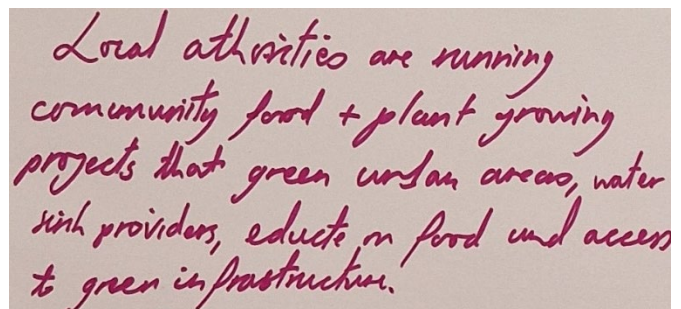 Local athorities are running
community food + plant growing
projects that green urban areas, water
sink providers, educte on food and access
to green infrastructure.